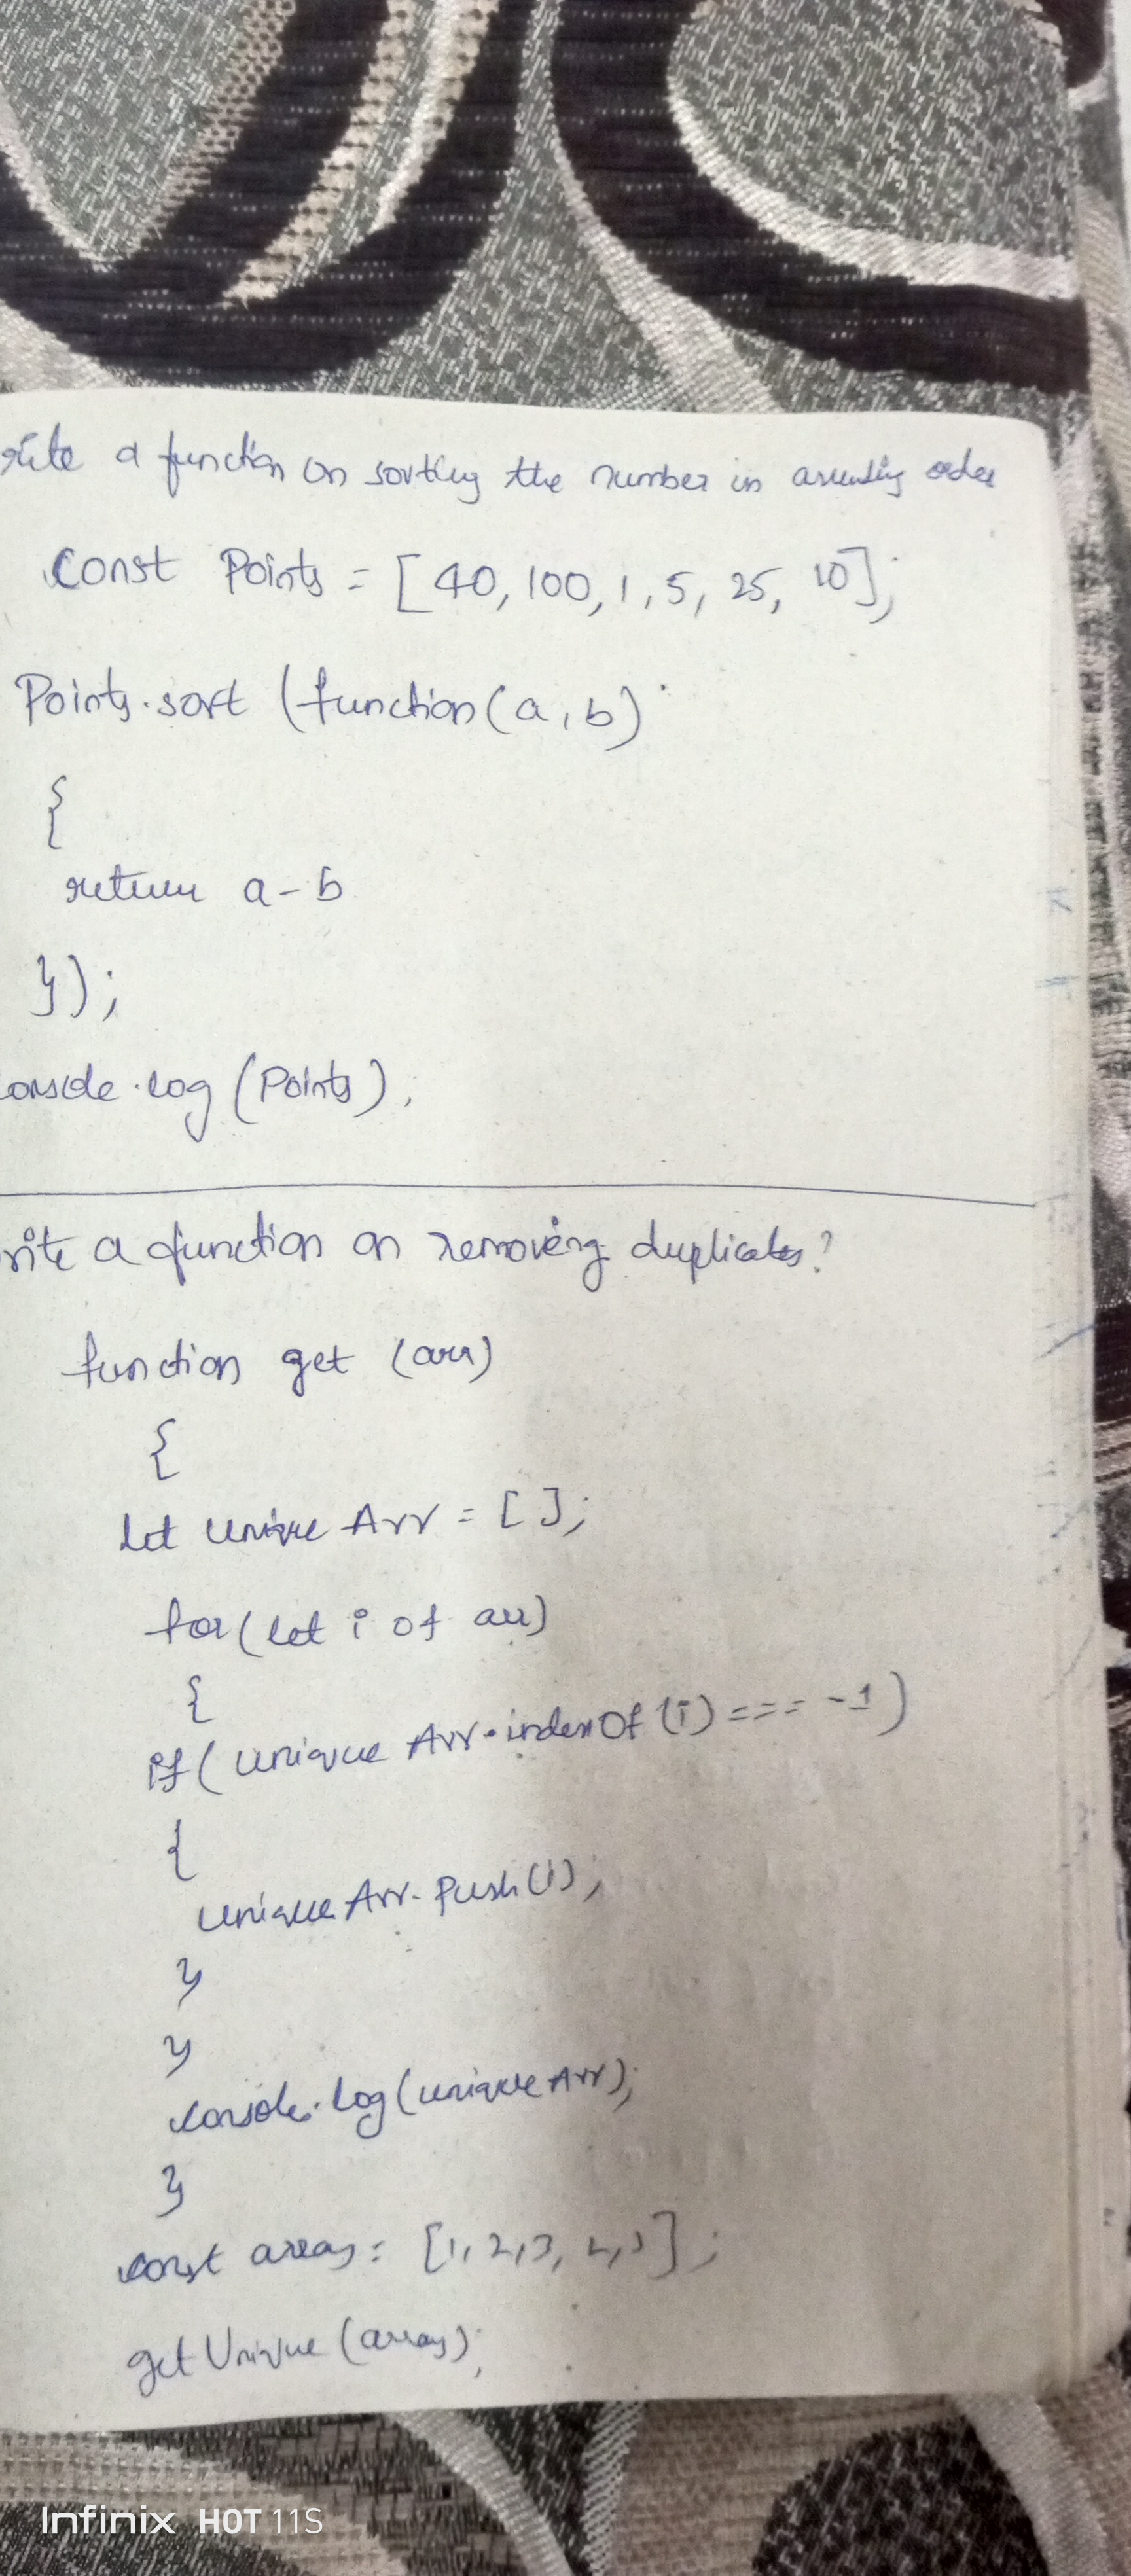 rite a function on sorting the number in asending order
const Points = [40, 100, 1, 5, 25, 10];
Points.sort (function(a, b)
{
return a-b
});
console.log (Points);
rite a function on removing duplicates?
function get (arr)
{
let unique Arr = [ ];
for(let i of arr)
{
if( unique Arr.indexOf (i) === -1)
{
unique Arr.push(i);
}
}
console.log(unique Arr);
}
const array = [1, 2, 3, 2, 3];
get Unique (array);
Infinix HOT 11S